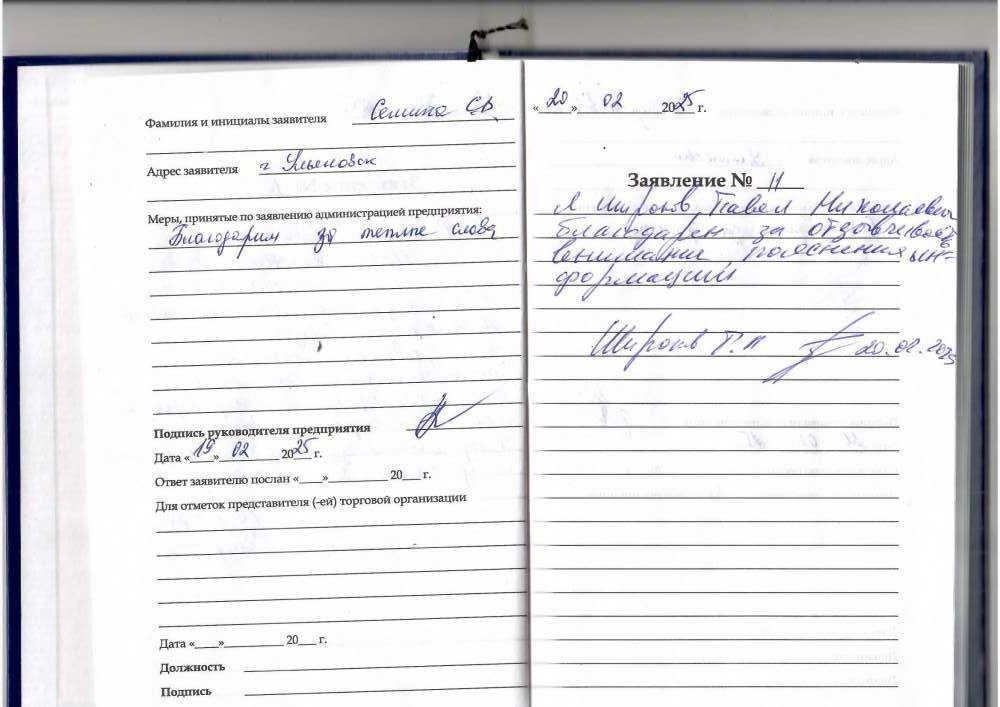 Фамилия и инициалы заявителя Семина С.В.
Адрес заявителя г Ульяновск
Меры, принятые по заявлению администрацией предприятия:
Благодарим за теплые слова
Подпись руководителя предприятия
Дата «19» 02 2025 г.
Ответ заявителю послан «___»__________ 20___ г.
Для отметок представителя (-ей) торговой организации
Дата «___»__________ 20___ г.
Должность
Подпись
«20» 02 2025 г.
Заявление № 11
Я Широков Павел Николаевич
благодарен за отзывчивость
внимание, пояснения ин-
формации
Широков П.Н 20.02.2025